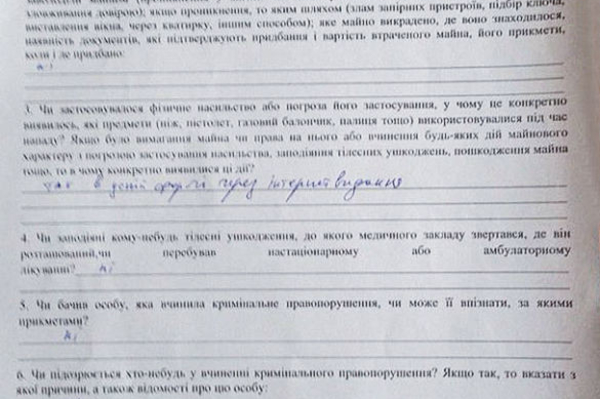 зловживання довірою); якщо проникнення, то яким шляхом (злам запірних пристроїв, підбір ключа,
виставлення вікна, через кватирку, іншим способом); яке майно викрадено, де воно знаходилося,
наявність документів, які підтверджують придбання і вартість втраченого майна, його прикмети,
коли і де придбано:
ні
3. Чи застосовувалося фізичне насильство або погроза його застосування, у чому це конкретно
виявилось, які предмети (ніж, пістолет, газовий балончик, палиця тощо) використовувалися під час
нападу? Якщо було вимагання майна чи права на нього або вчинення будь-яких дій майнового
характеру з погрозою застосування насильства, заподіяння тілесних ушкоджень, пошкодження майна
тощо, то в чому конкретно виявилися ці дії?
так в усній формі через інтернет видання
4. Чи заподіяні кому-небудь тілесні ушкодження, до якого медичного закладу звертався, де він
розташований,чи перебував настаціонарному або амбулаторному
лікуванні? ні
5. Чи бачив особу, яка вчинила кримінальне правопорушення, чи може її впізнати, за якими
прикметами?
ні
6. Чи підозрюється хто-небудь у вчиненні кримінального правопорушення? Якщо так, то вказати з
якої причини, а також відомості про цю особу: